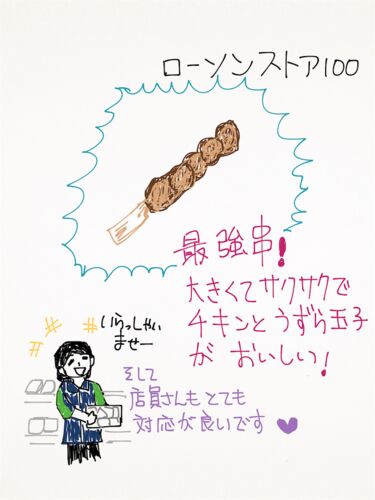 ローソンストア100
最強串!
大きくてサクサクで
チキンとうずら玉子
がおいしい!
いらっしゃい
ませー
そして
店員さんもとても
対応が良いです♥